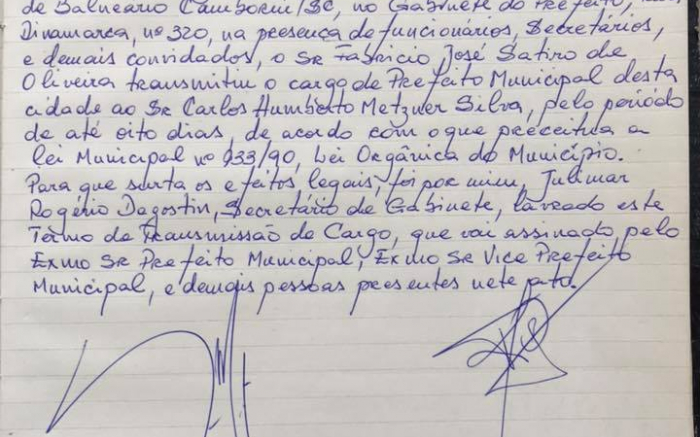 de Balneário Camboriú/SC, no Gabinete do Prefeito,
Dinamarca, nº 320, na presença de funcionários, Secretários,
e demais convidados, o Sr Fabrício José Satiro de
Oliveira transmitiu o cargo de Prefeito Municipal desta
cidade ao Sr Carlos Humberto Metzner Silva, pelo período
de até oito dias, de acordo com o que preceitua a
lei Municipal nº 933/90, Lei Orgânica do Município.
Para que surta os efeitos legais, foi por mim, Julimar
Rogério Dagostin, Secretário de Gabinete, lavrado este
Termo de Transmissão de Cargo, que vai assinado pelo
Exmo Sr Prefeito Municipal, Exmo Sr Vice Prefeito
Municipal, e demais pessoas presentes nete ato.